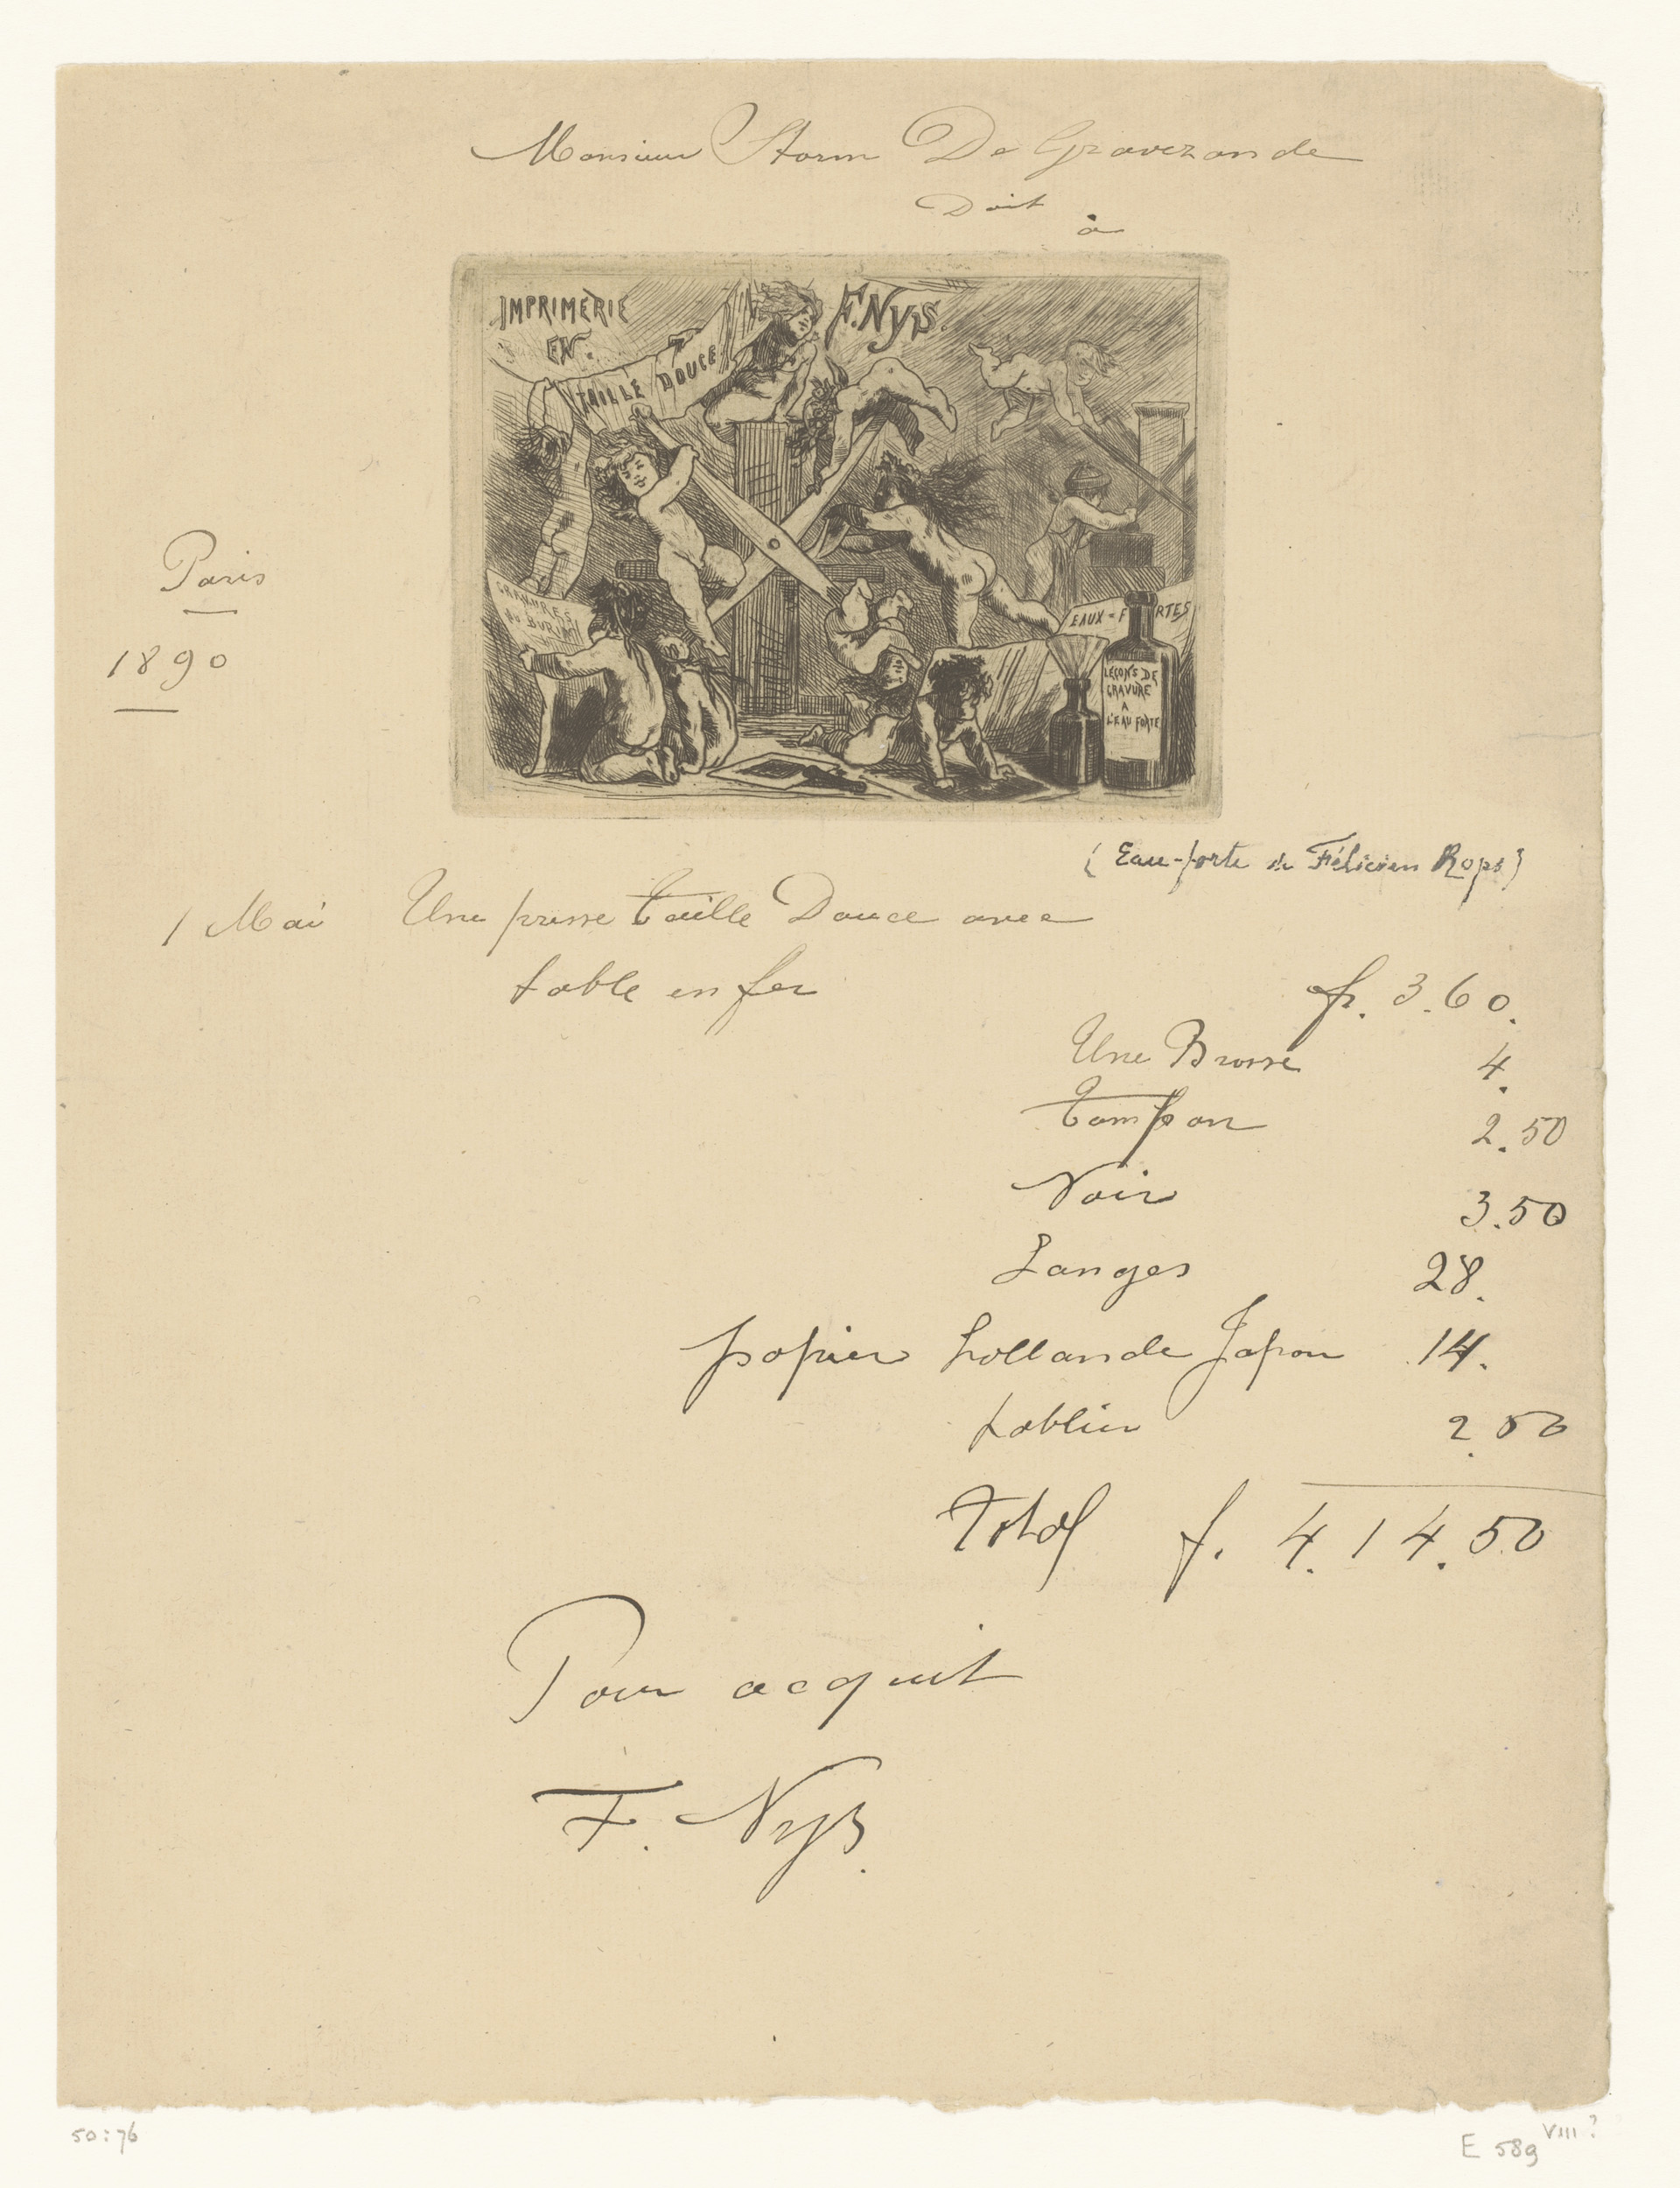 Monsieur Storm De Gravezande
Doit
à
IMPRIMERIE
EN.
TAILLE DOUCE
F. Nys.
GRAVURES
AU BURIN
EAUX-FORTES
LEÇONS DE
GRAVURE
A
L'EAU FORTE
Paris
1890
(Eau-forte de Félicien Rops)
1 Mai Une presse taille Douce avec
table en fer fr. 3.60.
Une Brosse 4.
tampon 2.50
Noir 3.50
Langes 28.
papier hollande Japon 14.
tablier 2.50
Total f. 4.14.50
Pour acquit
F. Nys.
50:76
E 589 VIII?